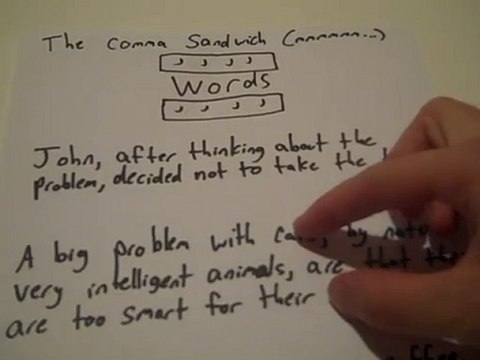 The Comma Sandwich (mmmmmm...)
, , , ,
Words
, , , ,
John, after thinking about the
problem, decided not to take the
A big problem with by
very intelligent animals, are that
are too smart for their